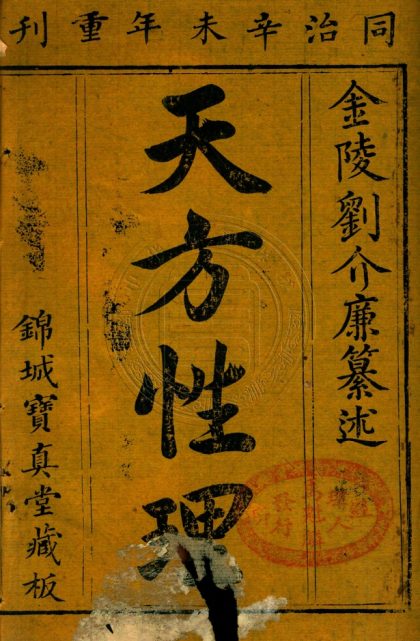 同治辛未年重刊
金陵劉介廉纂述
天方性理
錦城寶真堂藏板
發行